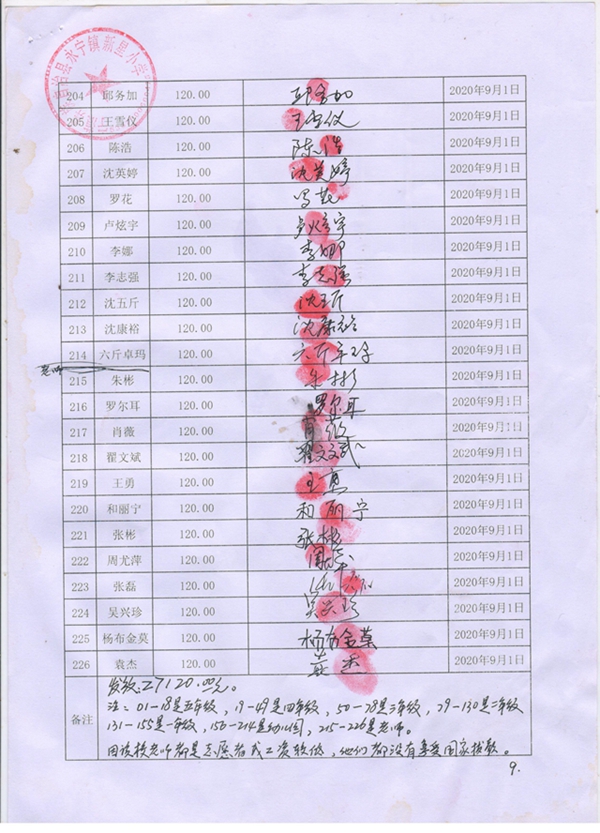 自治县永宁镇新星小学
204 邱务加 120.00 邱务加 2020年9月1日
205 王雪仪 120.00 王雪仪 2020年9月1日
206 陈浩 120.00 陈浩 2020年9月1日
207 沈英婷 120.00 沈英婷 2020年9月1日
208 罗花 120.00 罗花 2020年9月1日
209 卢炫宇 120.00 卢炫宇 2020年9月1日
210 李娜 120.00 李娜 2020年9月1日
211 李志强 120.00 李志强 2020年9月1日
212 沈五斤 120.00 沈五斤 2020年9月1日
213 沈康裕 120.00 沈康裕 2020年9月1日
214 六斤卓玛 120.00 六斤卓玛 2020年9月1日
老师
215 朱彬 120.00 朱彬 2020年9月1日
216 罗尔耳 120.00 罗尔耳 2020年9月1日
217 肖薇 120.00 肖薇 2020年9月1日
218 瞿文斌 120.00 瞿文斌 2020年9月1日
219 王勇 120.00 王勇 2020年9月1日
220 和丽宁 120.00 和丽宁 2020年9月1日
221 张彬 120.00 张彬 2020年9月1日
222 周尤萍 120.00 2020年9月1日
223 张磊 120.00 2020年9月1日
224 吴兴珍 120.00 吴兴珍 2020年9月1日
225 杨布金莫 120.00 杨布金莫 2020年9月1日
226 袁杰 120.00 袁杰 2020年9月1日
备注
发款:27120.00元。
注:01-18是五年级,19-49是四年级,50-78是三年级,79-130是二年级
131-155是一年级,156-214是幼儿园,215-226是老师。
因该校老师都是志愿者或工资较低,他们都没有享受国家拨款。
9.